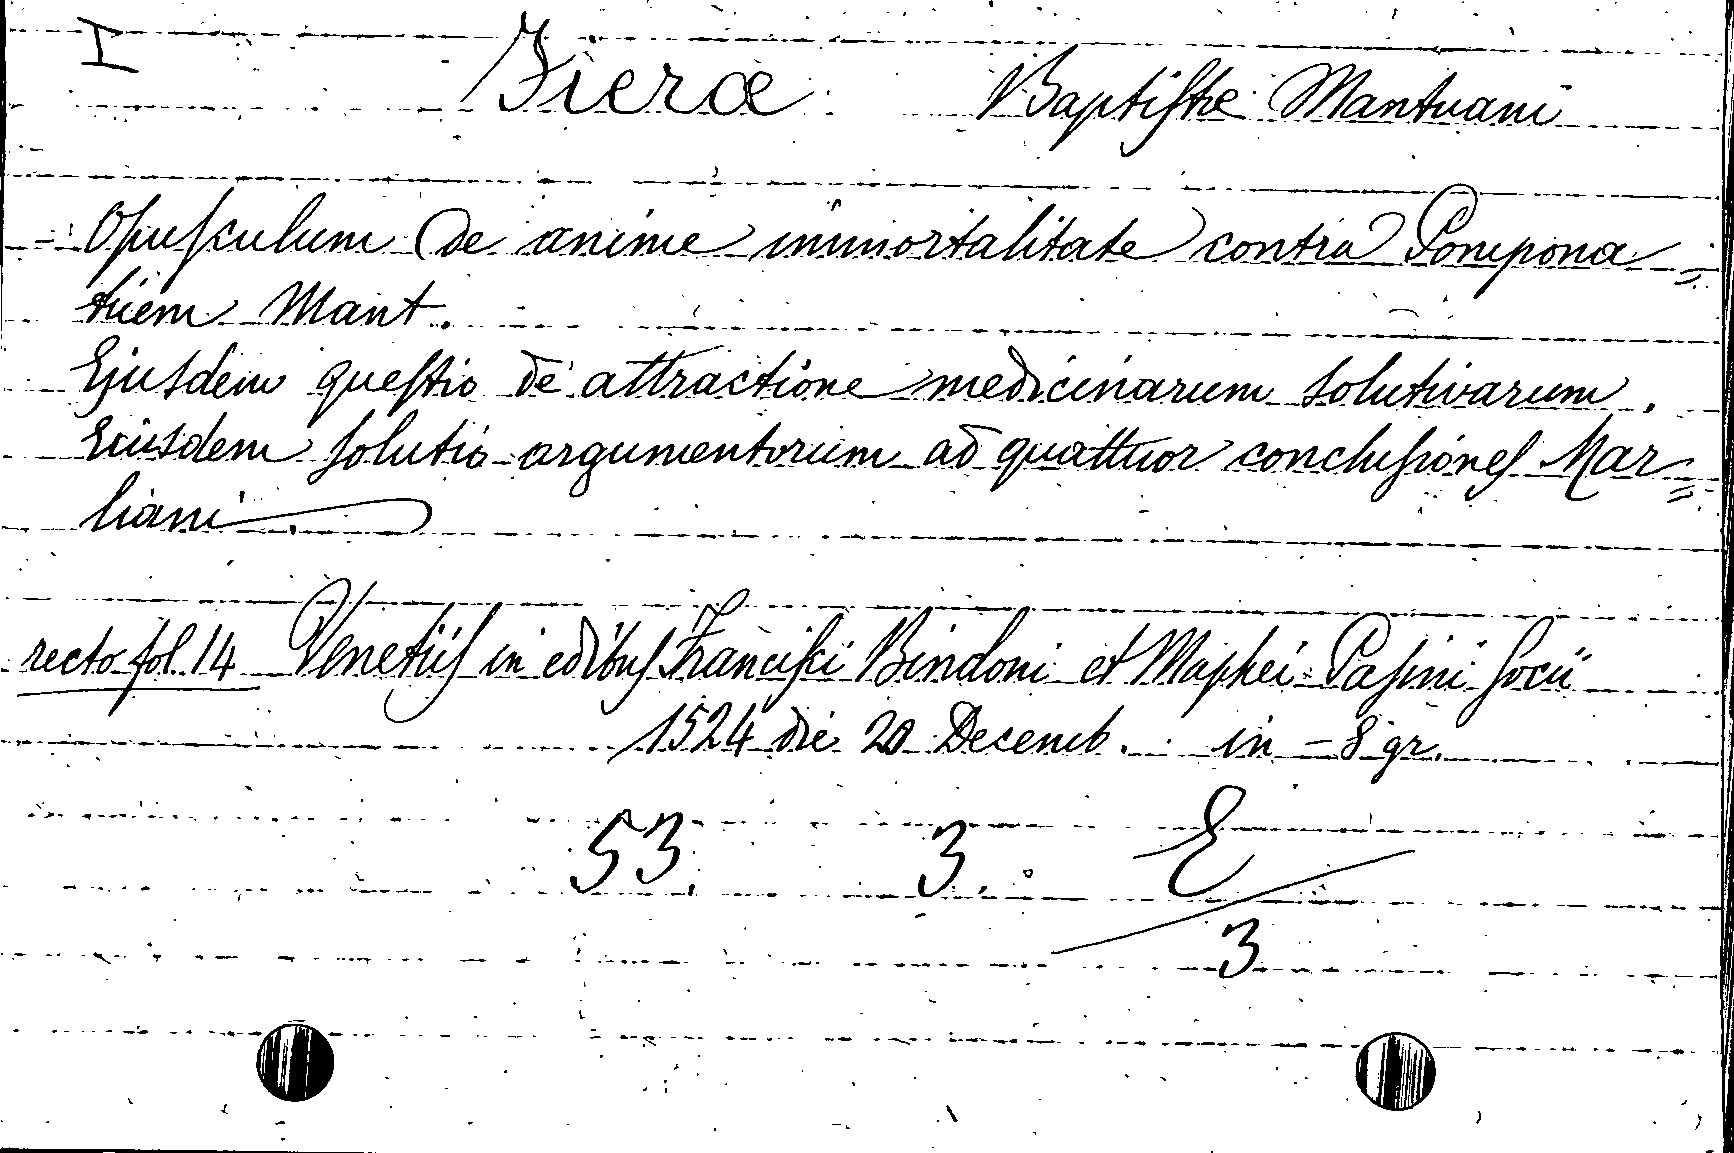 I Fieræ Baptistæ Mantuani
Opusculum de anime immortalitate contra Pompona=
tium Mant.
Ejusdem questio de attractione medicinarum solutivarum.
Eiusdem solutio argumentorum ad quattuor conclusiones Mar=
liani.
recto fol. 14 Venetiis in edibus Francisci Bindoni et Maphei Pasini socii
1524 die 20 Decemb. in -8 gr.
53. 3. E
3